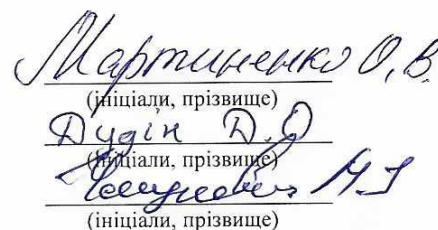 Мартиненко О.В.
(ініціали, прізвище)
Дудік Д.О
(ініціали, прізвище)
(ініціали, прізвище)